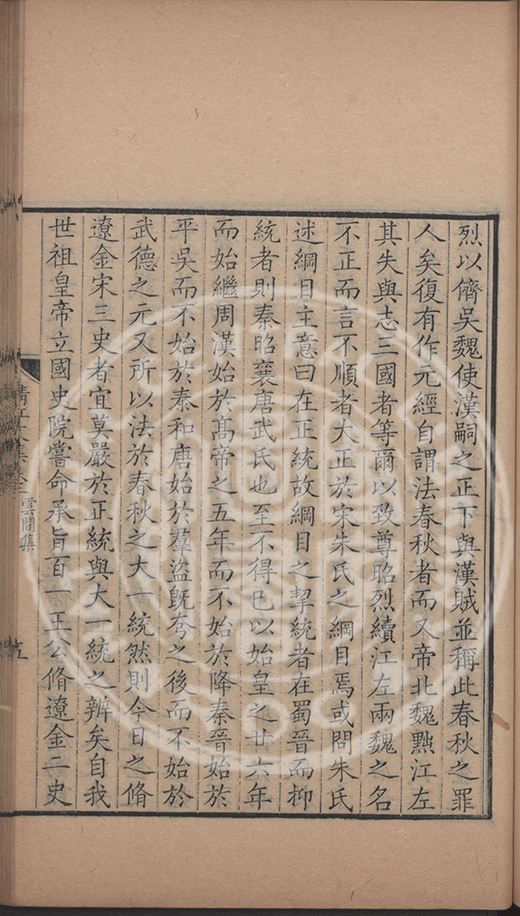 烈以儕吳魏使漢嗣之正下與漢賊並稱此春秋之罪
人矣復有作元經自謂法春秋者而又帝北魏黜江左
其失與志三國者等爾以致尊昭烈續江左兩魏之名
不正而言不順者大正於宋朱氏之綱目焉或問朱氏
述綱目主意曰在正統故綱目之挈統者在蜀晉而抑
統者則秦昭襄唐武氏也至不得已以始皇之廿六年
而始繼周漢始於高帝之五年而不始於降秦晉始於
平吳而不始於秦和唐始於羣盜旣夸之後而不始於
武德之元又所以法於春秋之大一統然則今日之脩
遼金宋三史者宜莫嚴於正統與大一統之辨矣自我
世祖皇帝立國史院嘗命承旨百一王公脩遼金二史
雲間集